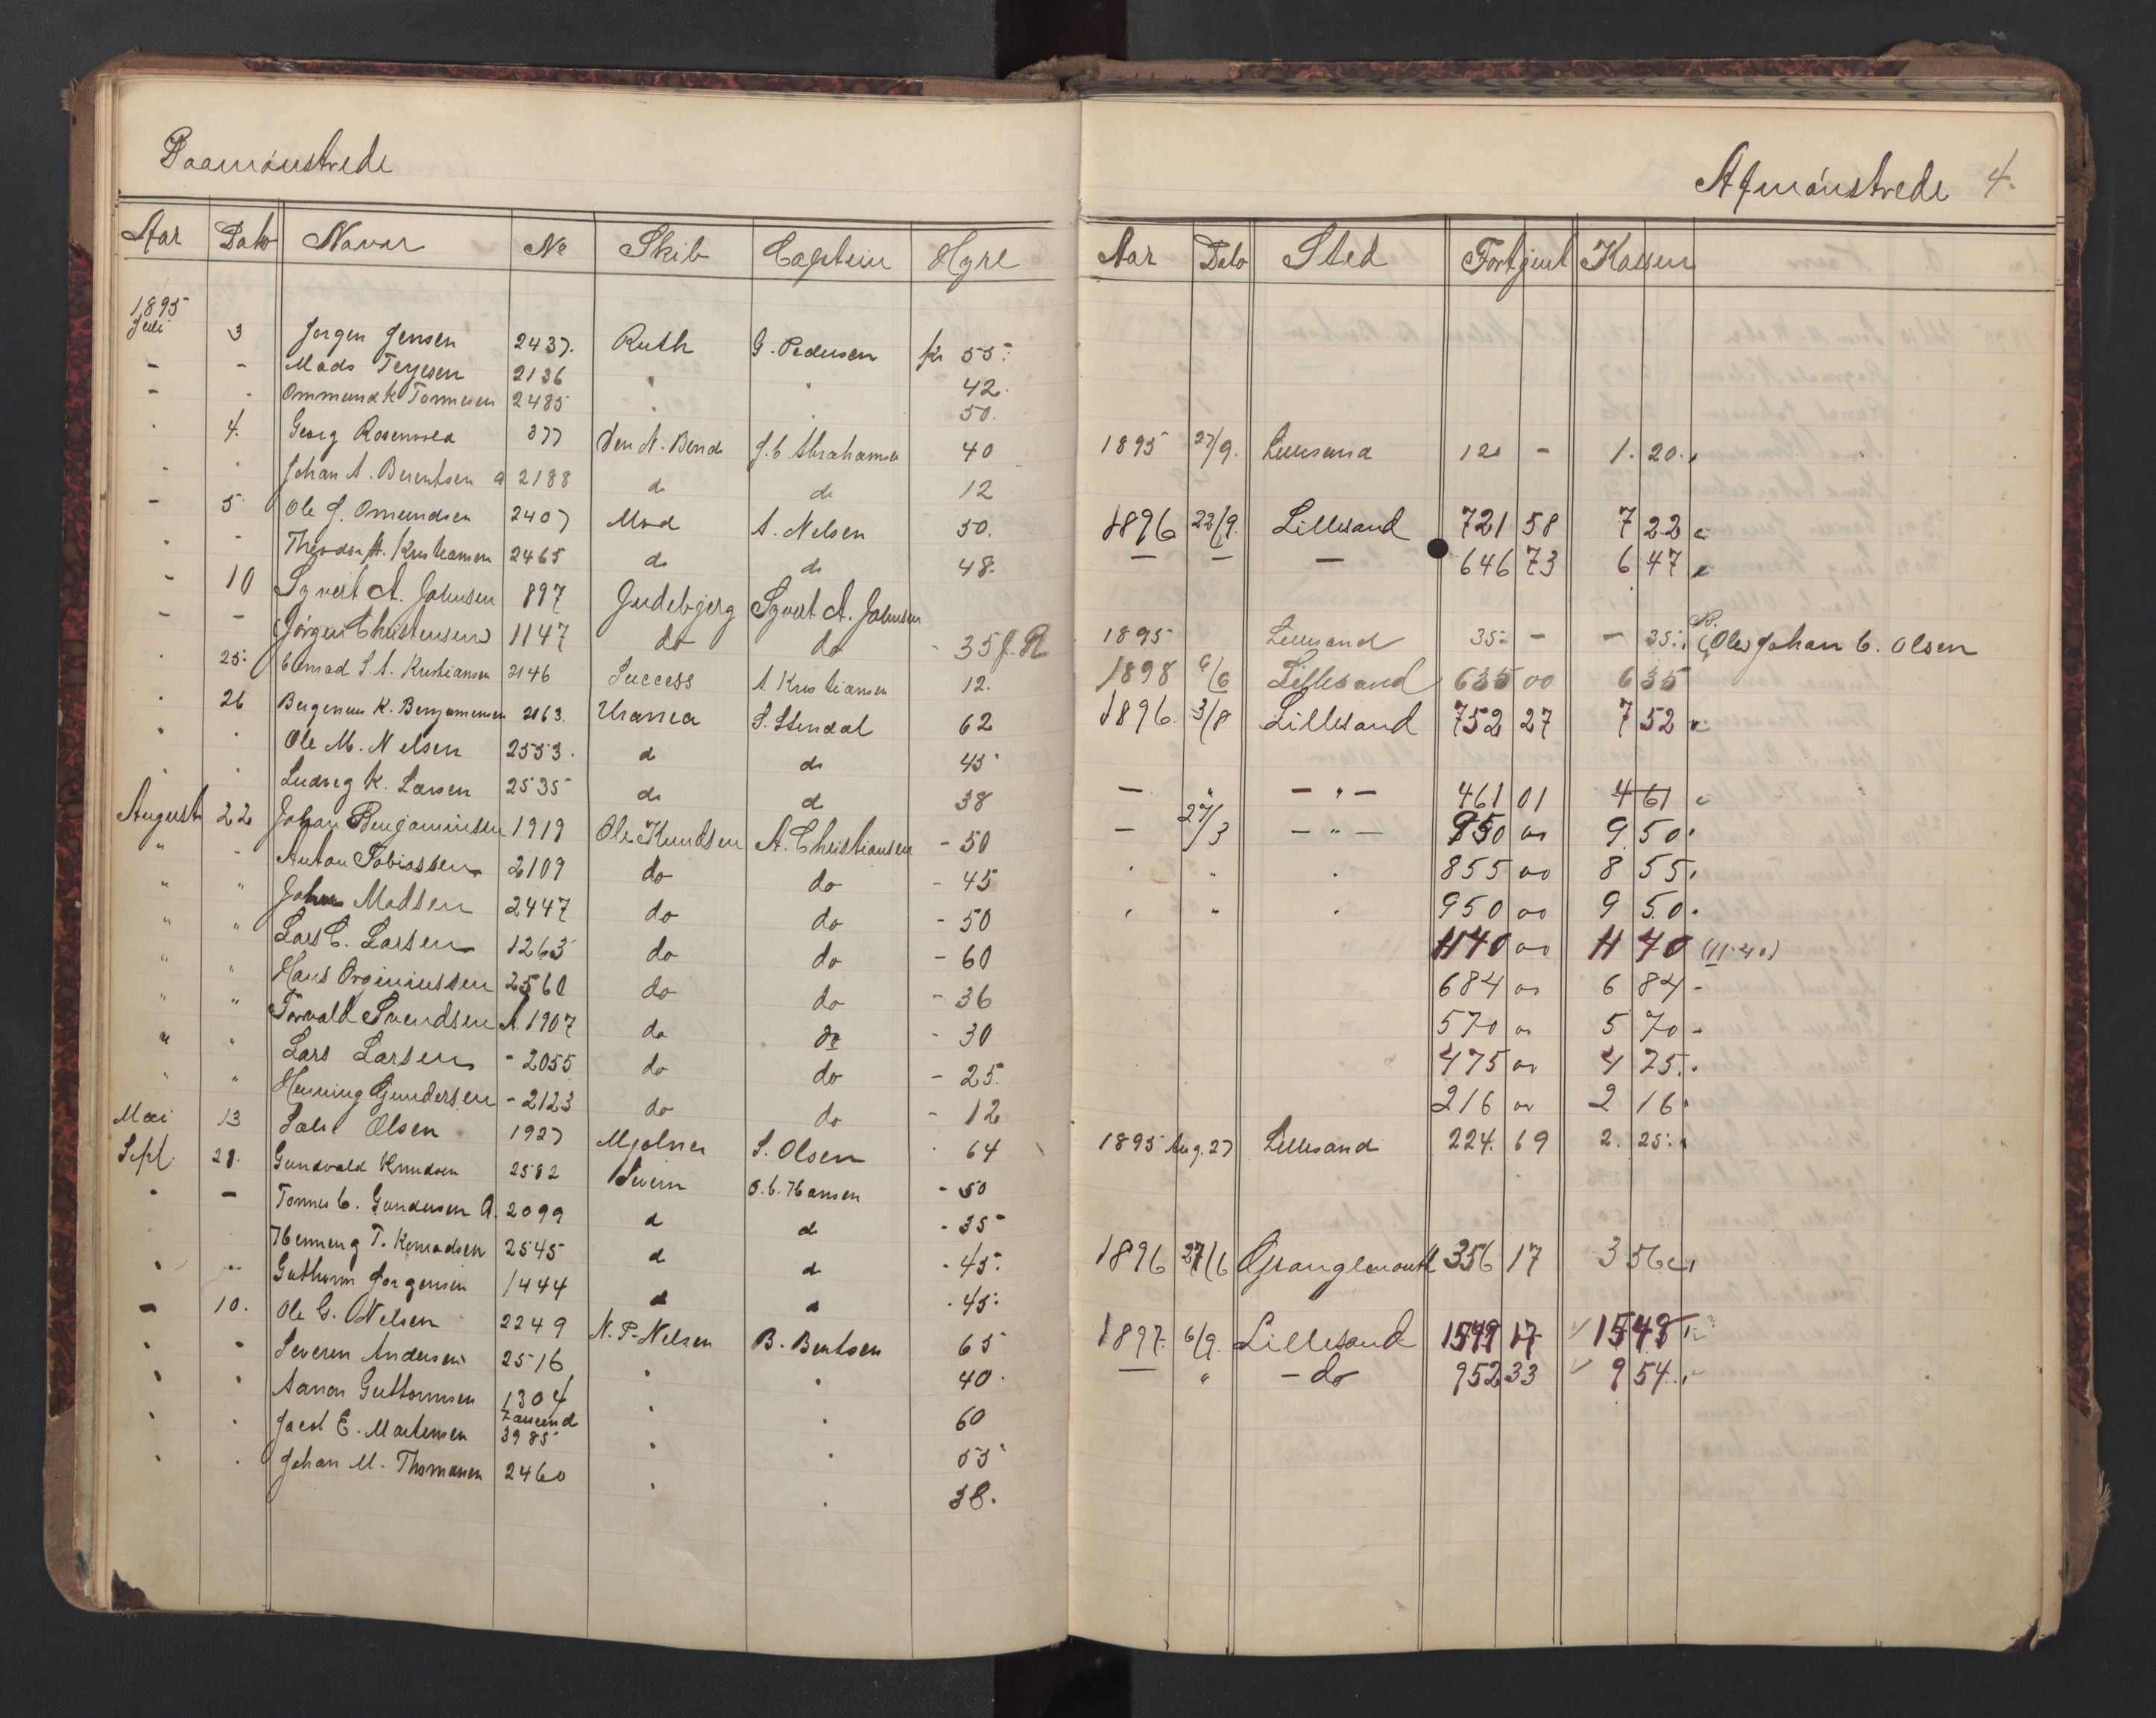 Paamönstrede
Afmönstrede 4.
Aar Dato Navn No Skib Captein Hyre
Aar Dato Sted Fortjent Kassen
1895
Juli 3 Jørgen Jensen 2437. Ruth G. Pedersen kr 55.
- - Mads Terjesen 2136 " " 42.
- . Ommund K Tønnesen 2485 . . 50.
. 4. Georg Rosenvold 377 J. C Abrahamsen 40 1895 27/9. Lillesand 120 - 1. 20.
- . Johan A. Berentsen a 2188 do do 12
- 5. Ole J. Omundsen 2407 Mod A. Nelsen 50. 1896 22/9. Lillesand 721 58 7 22
. - Theodor A. Kristiansen 2465 do do 48. - - - 646 73 6 47
- 10 Sigvert A. Johnsen 897 Gudebjerg Sigvert A. Johnsen
- - (Jörgen Christensen) 1147 do do - 35 1895 Lillesand 35. - - 35. (Ole) Johan C. Olsen
. 25. Conrad S. A. Kristiansen 2146 Success A. Kristiansen 12. 1898 6/6 Lillesand 635 00 6 35
. 26 K. Benjaminsen 2163. Urania S. Stendal 62 1896. 3/8 Lillesand 752 27 7 52
. . Ole M. Nelsen 2553. do do 45
. . Ludvig K. Larsen 2535 do do 38 - " - " - 461 01 4 61
August 22 Johan Benjaminsen 1919 Ole Knudsen A. Christiansen - 50 - 27/3 - " - 950 00 9 50
" - Anton Tobiassen 2109 do do - 45 . " . 855 00 8 55
" " John Madsen 2447 do do - 50 . " . 950 00 9 50
" " Lars C. Larsen 1263 do do - 60 1140 00 11 40 (11.40)
" " Hans 2560 do do - 36 684 00 6 84 -
" " Torvald Svendsen A. 1907 do do - 30 570 00 5 70 -
" " Lars Larsen - 2055 do do - 25. 475 00 4 75.
" " Henning Gundersen - 2123 do do - 12 216 00 2 16
Mai 13 Olsen 1927 Mjølner S. Olsen . 64 1895 Aug. 27 Lillesand 224. 69 2. 25.
Sept. 28. Gundvald Knudsen 2582 O. C. Hansen - 50
. - Tønnes C. Gundersen A. 2099 do do - 35
Henning T. Konradsen 2545 do do - 45. 1896 27/6 Grangemouth 356 17 3 56
. " Guthorm Jørgensen 1444 do do . 45.
- 10. Ole G. Nelsen 2249 N. P. Nelsen B. Bentsen 65 1897. 6/9. Lillesand 17 15
. . Severin Andersen 2516 . . 40. - " - do 952 33 9 54.
. . Aanon Guttormsen 1304 . . 60
. . Jacob E. Mortensen 3985 . . 55
. . Johan M. Thomasen 2460 . . 38.